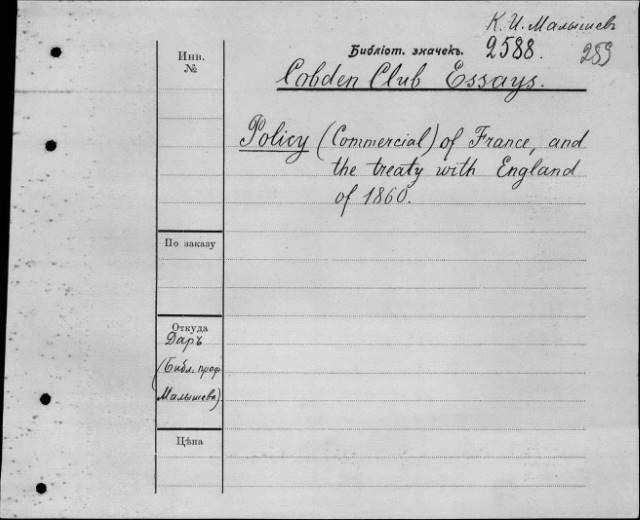 К. И. Малышевъ
Библіот. значекъ. 2588. 289
Инв.
№
Cobden Club Essays.
Policy (Commercial) of France, and
the treaty with England
of 1860.
По заказу
Откуда
Даръ
(Библ. проф
Малышева)
Цѣна